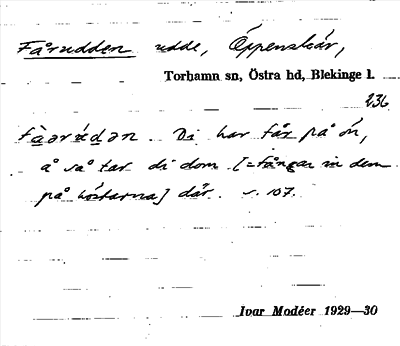 Fårudden udde, Öppenskär,
Torhamn sn, Östra hd, Blekinge l.
236
fà̱ərʉ́ḏən. Di har får på ón,
å så tar di dom [=fångar in dem
på höstarna] där. s. 107.
Ivar Modéer 1929—30